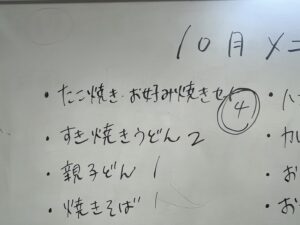 10月メニ
・たこ焼き・お好み焼きセット ④
・すき焼きうどん 2
・親子どん 1
・焼きそば 1
・ハ
・カル
・お
・お